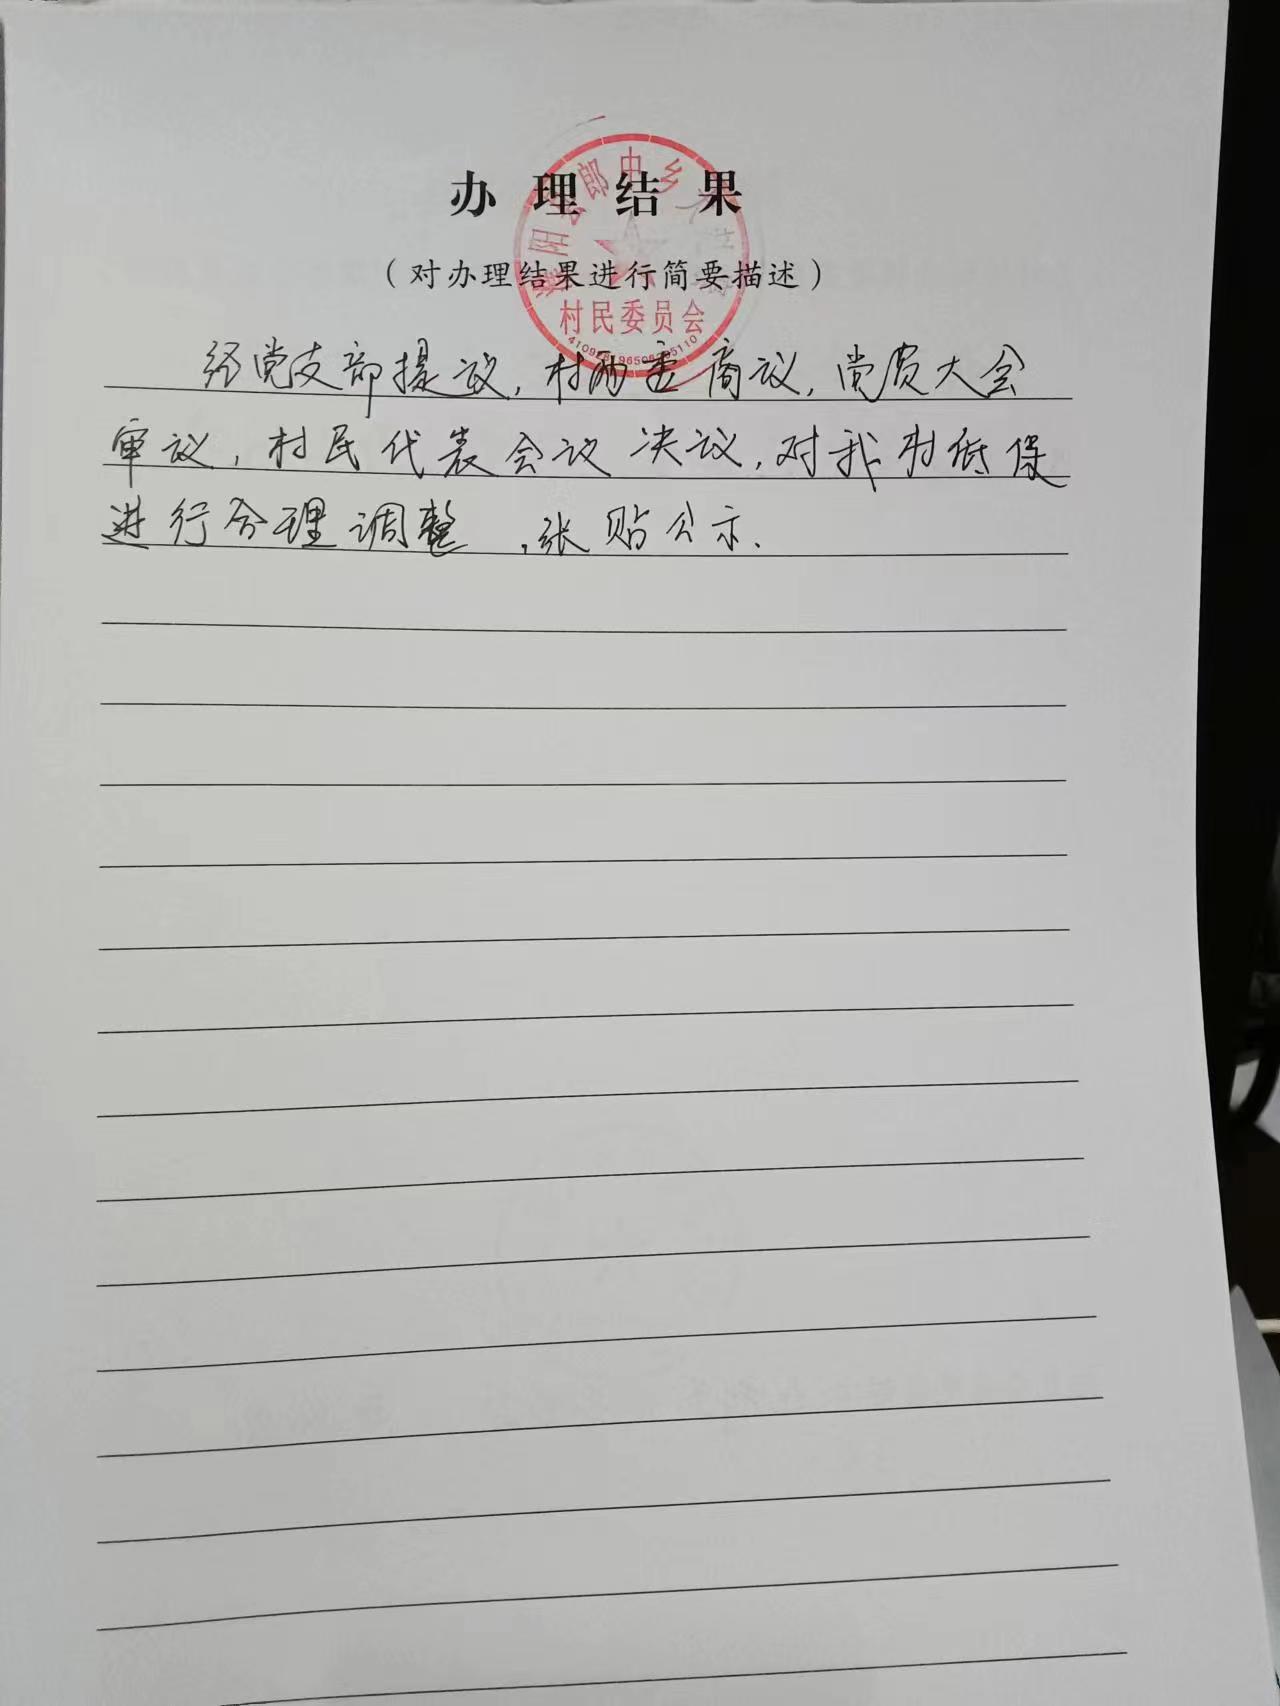 办理结果
（对办理结果进行简要描述）
濮阳县郎中乡
村民委员会
经党支部提议，村两委商议，党员大会
审议，村民代表会议决议，对我村低保
进行合理调整，张贴公示.